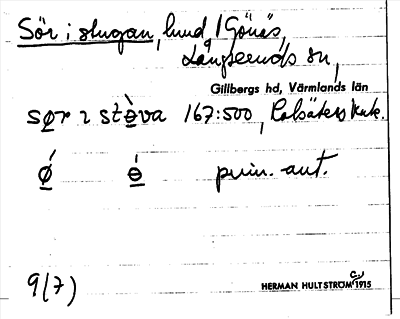 Sör i stugan, lund, 1 Gönäs,
Långseruds sn,
Gillbergs hd, Värmlands län
sør ɩ stɵ̀va 167:500, Rolsäters Kvk.
ǿ ɵ́ prim. ant.
9(7)
HERMAN HULTSTRÖM C:a 1915